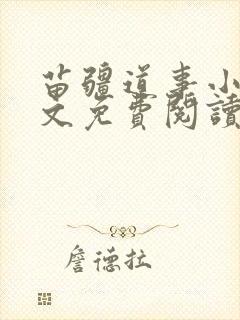 苗疆道事小
文免費閱讀
詹德拉